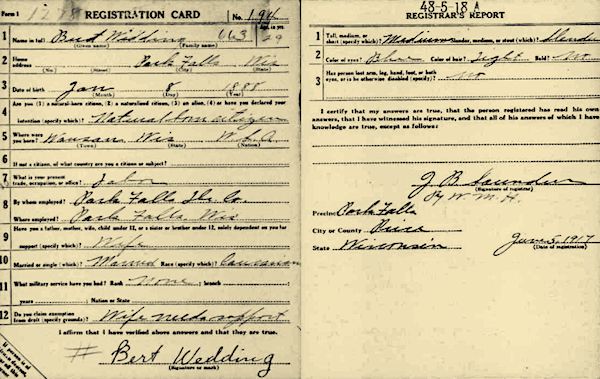 Form 1
REGISTRATION CARD
No. 194
Age, in yrs.
1 Name in full Bert Wedding 29
(Given name) (Family name)
2 Home address Park Falls Wis
(No.) (Street) (City) (State)
3 Date of birth Jan 8 1888
(Month) (Day) (Year)
Are you (1) a natural-born citizen, (2) a naturalized citizen, (3) an alien, (4) or have you declared your
4 intention (specify which)? Natural born citizen
5 Where were you born? Wausau Wis U.S.A
(Town) (State) (Nation)
6 If not a citizen, of what country are you a citizen or subject?
7 What is your present trade, occupation, or office? Labor
8 By whom employed? Park Falls Co.
Where employed? Park Falls, Wis
Have you a father, mother, wife, child under 12, or a sister or brother under 12, solely dependent on you for
9 support (specify which)? Wife
10 Married or single (which)? Married Race (specify which)? Caucasian
11 What military service have you had? Rank None ; branch
years ; Nation or State
12 Do you claim exemption from draft (specify grounds)? Wife needs support
I affirm that I have verified above answers and that they are true.
# Bert Wedding
(Signature or mark)
48-5-18 A
REGISTRAR'S REPORT
1 Tall, medium, or short (specify which)? Medium Slender, medium, or stout (which)? Slender
2 Color of eyes? Blue Color of hair? Light Bald? No
3 Has person lost arm, leg, hand, foot, or both eyes, or is he otherwise disabled (specify)? No
I certify that my answers are true, that the person registered has read his own
answers, that I have witnessed his signature, and that all of his answers of which I have
knowledge are true, except as follows:
J B Saunders
(Signature of registrar)
By W M H
Precinct Park Falls
City or County Price
State Wisconsin June 5, 1917
(Date of registration)